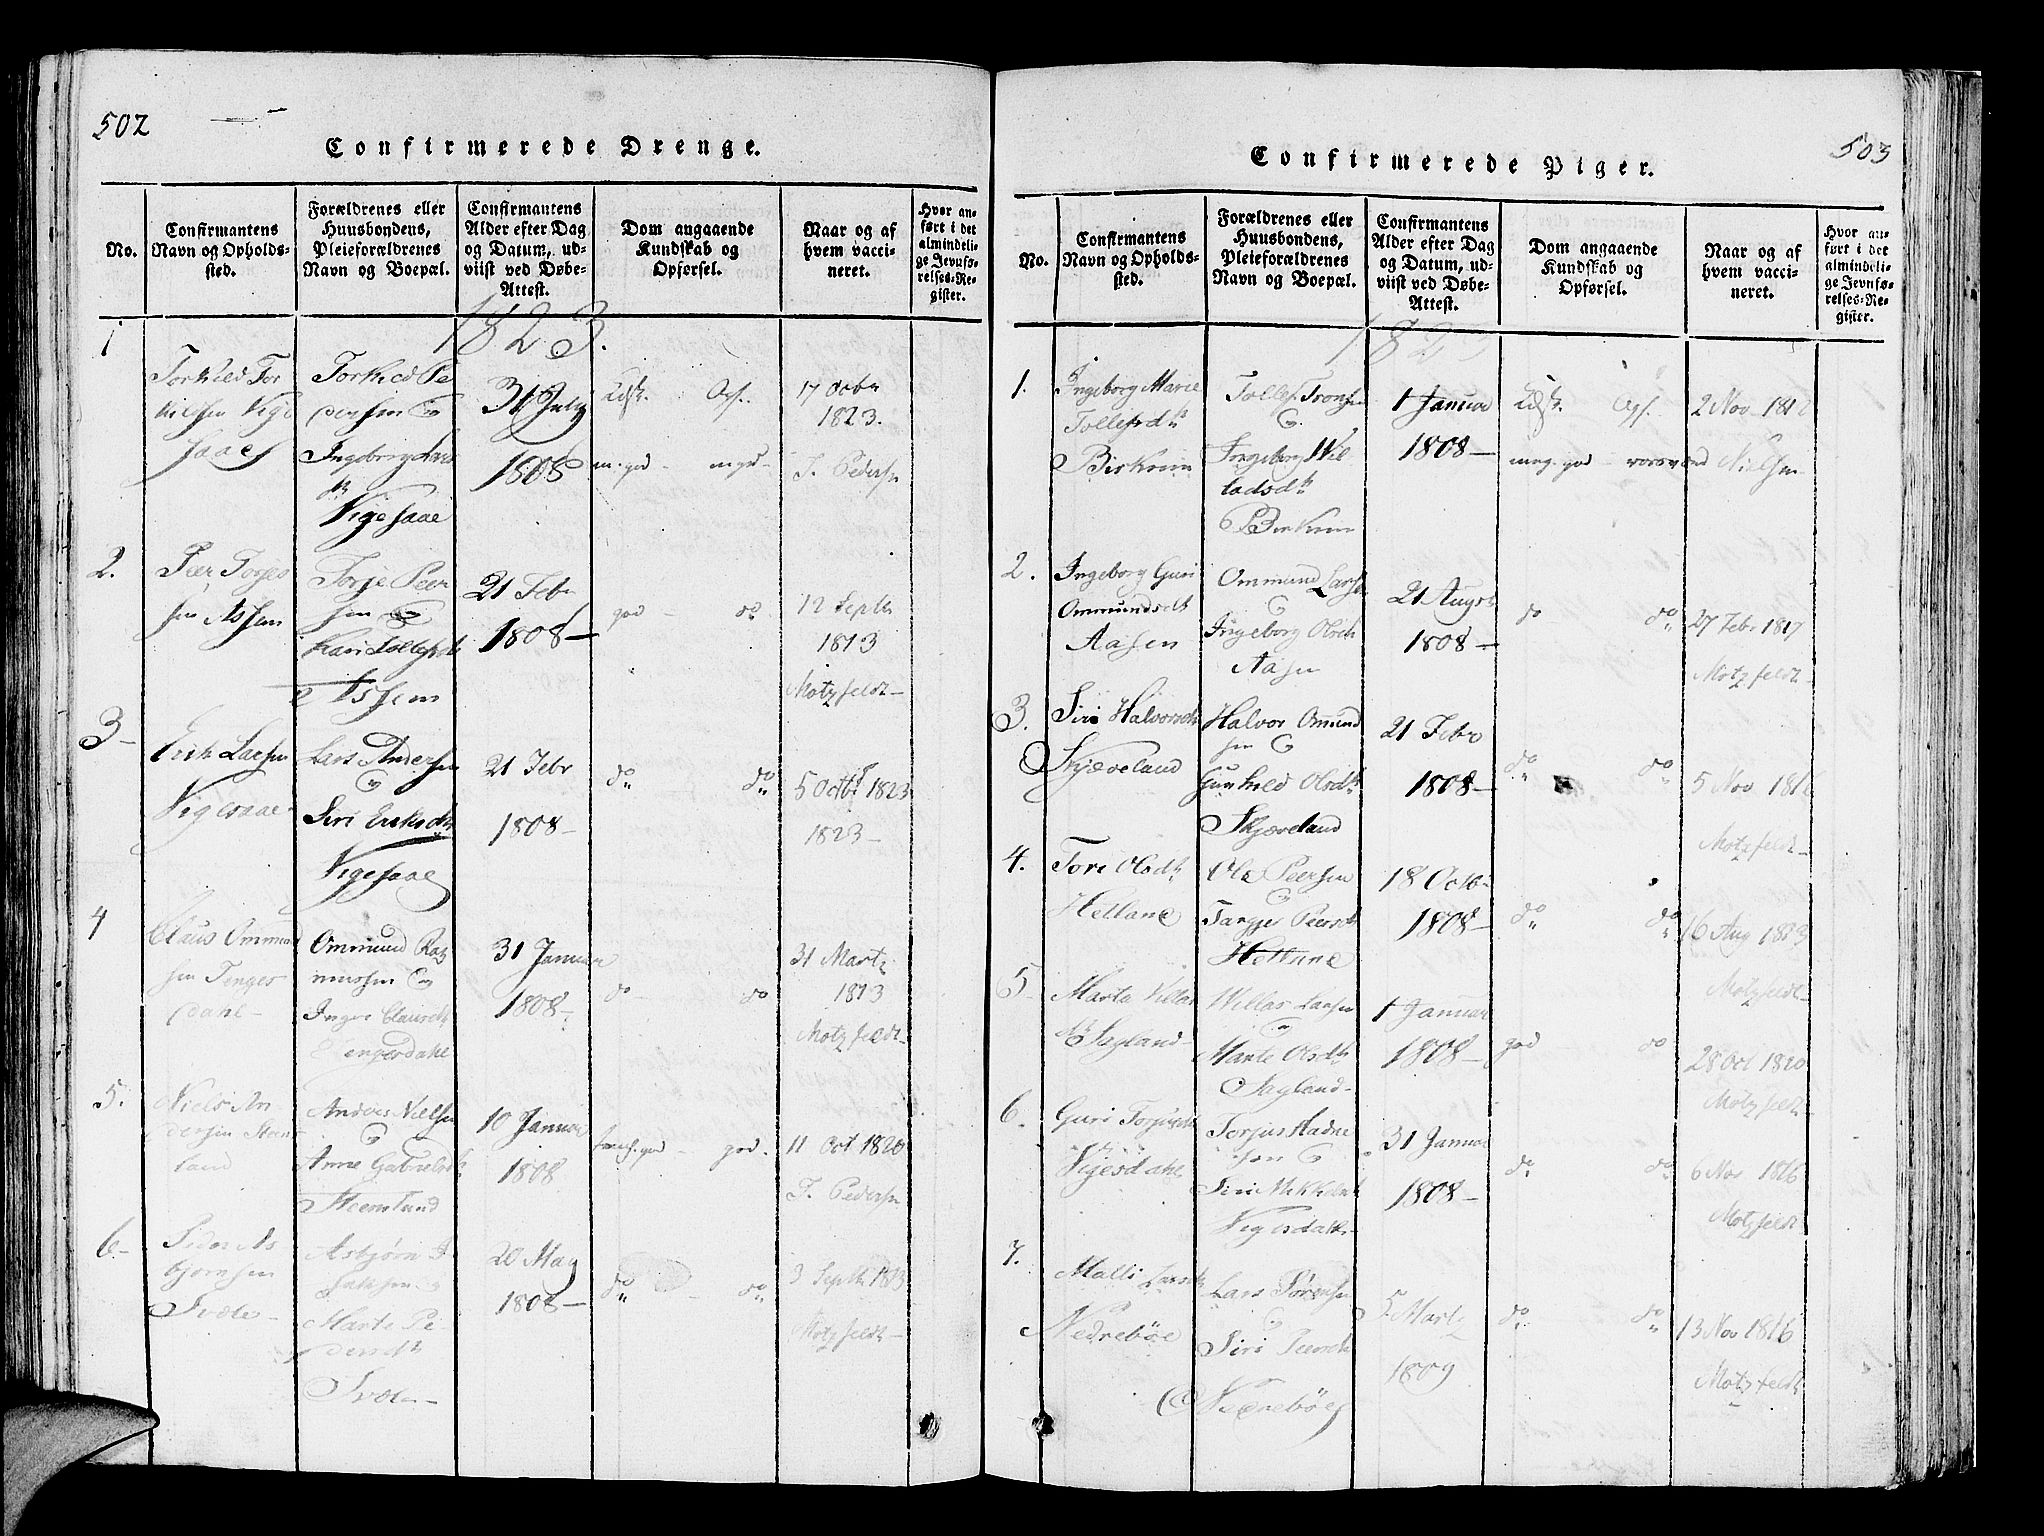 502
Confirmerede Drenge.
No.
Confirmantens
Navn og Opholds-
sted.
Forældrenes eller
Huusbondens,
Pleieforældrenes
Navn og Boepæl.
Confirmantens
Alder efter Dag
og Datum, ud-
viist ved Døbe-
Attest.
Dom angaaende
Kundskab og
Opførsel.
Naar og af
hvem vacci-
neret.
Hvor an-
ført i det
almindeli-
ge Jevnfø-
relses-Re-
gister.
1823.
1
Torkild Tor
kilsen Vige
saae
Torkild Pe
dersen &
Ingeborg
Vigesaae
31 July
1808
Kdsk. Opf.
m: god - mgod -
17 Octbr
1823.
T. Pedersn
2.
Peer Torjes
sen Assem
Torje Peer
sen &
Kari Tollefsdt
Assem
21 Febr
1808 -
god - do
12 Septbr
1813
Motzfeldt -
3 -
Erik Larsen
Vigesaae -
Lars Andersen
&
Siri Eriksdtr
Vigesaae
21 Febr
1808 -
do do
5 Octbr 1823
1823 -
4
Claus Ommun
sen Tenges
dahl -
Ommund Ras
mussen &
Inger Clausdtr
Tengesdahl
31 Januar
1808 -
do - do
31 Marts
1813
Motzfeldt -
5.
Niels An
dersen Steens
land
Anders Nielsen
&
Anne Gabrielsdtr
Steensland
10 Januar
1808
god - god.
11 Oct 1820
T. Pedersn
6 -
Peder As
bjørnsen
Svele -
Asbjørn I
saksen &
Marte Pe
dersdtr
Svele -
20 May
1808 -
do - do
3 Septbr 1813
Motzfeldt -
503
Confirmerede Piger.
No.
Confirmantens
Navn og Opholds-
sted.
Forældrenes eller
Huusbondens,
Pleieforældrenes
Navn og Boepæl.
Confirmantens
Alder efter Dag
og Datum, ud-
viist ved Døbe-
Attest.
Dom angaaende
Kundskab og
Opførsel.
Naar og af
hvem vacci-
neret.
Hvor an-
ført i det
almindeli-
ge Jevnfø-
relses-Re-
gister.
1823
1.
Ingeborg Marie
Tollefsdtr
Birkrem
Tollef Tronsen
&
Ingeborg Wil
ladsdtr
Birkrem
1 Januar
1808 -
Kdsk. Opf.
meg. god -
2 Nov 1816
Nielsen
2.
Ingeborg Guri
Ommundsdtr
Aasen
Ommund Larsen
&
Ingeborg Olsdtr
Aasen
21 Augst
1808 -
do do
27 Febr 1817
Motzfeldt -
3.
Siri Halvorsdtr
Skjæveland
Halvor Ommund
sen &
Gunhild Olsdtr
Skjæveland
21 Febr
1808 -
do do
5 Nov 1816
Motzfeldt -
4.
Tori Olsdtr
Hetland
Ole Peersen
&
Tarje Peersdtr
Hetland
18 Octbr
1808 -
do do
16 Aug 1813
Motzfeldt -
5
Marta Villas
dtr Sagland -
Willas Larsen
&
Marte Olsdtr
Sagland -
1 Januar
1808 -
god do
28 Oct 1820
Motzfeldt
6.
Guri Torjusdtr
Vigesdahl
Torjus Aadne
sen &
Siri Mikkelsdtr
Vigesdahl
31 Januar
1808 -
do do
6 Nov 1816
Motzfeldt
7.
Malli Larsdtr
Nedrebøe
Lars Sørensen
&
Siri Peersdtr
Nedrebøe
5 Marts
1809
do do
13 Nov 1816
Motzfeldt